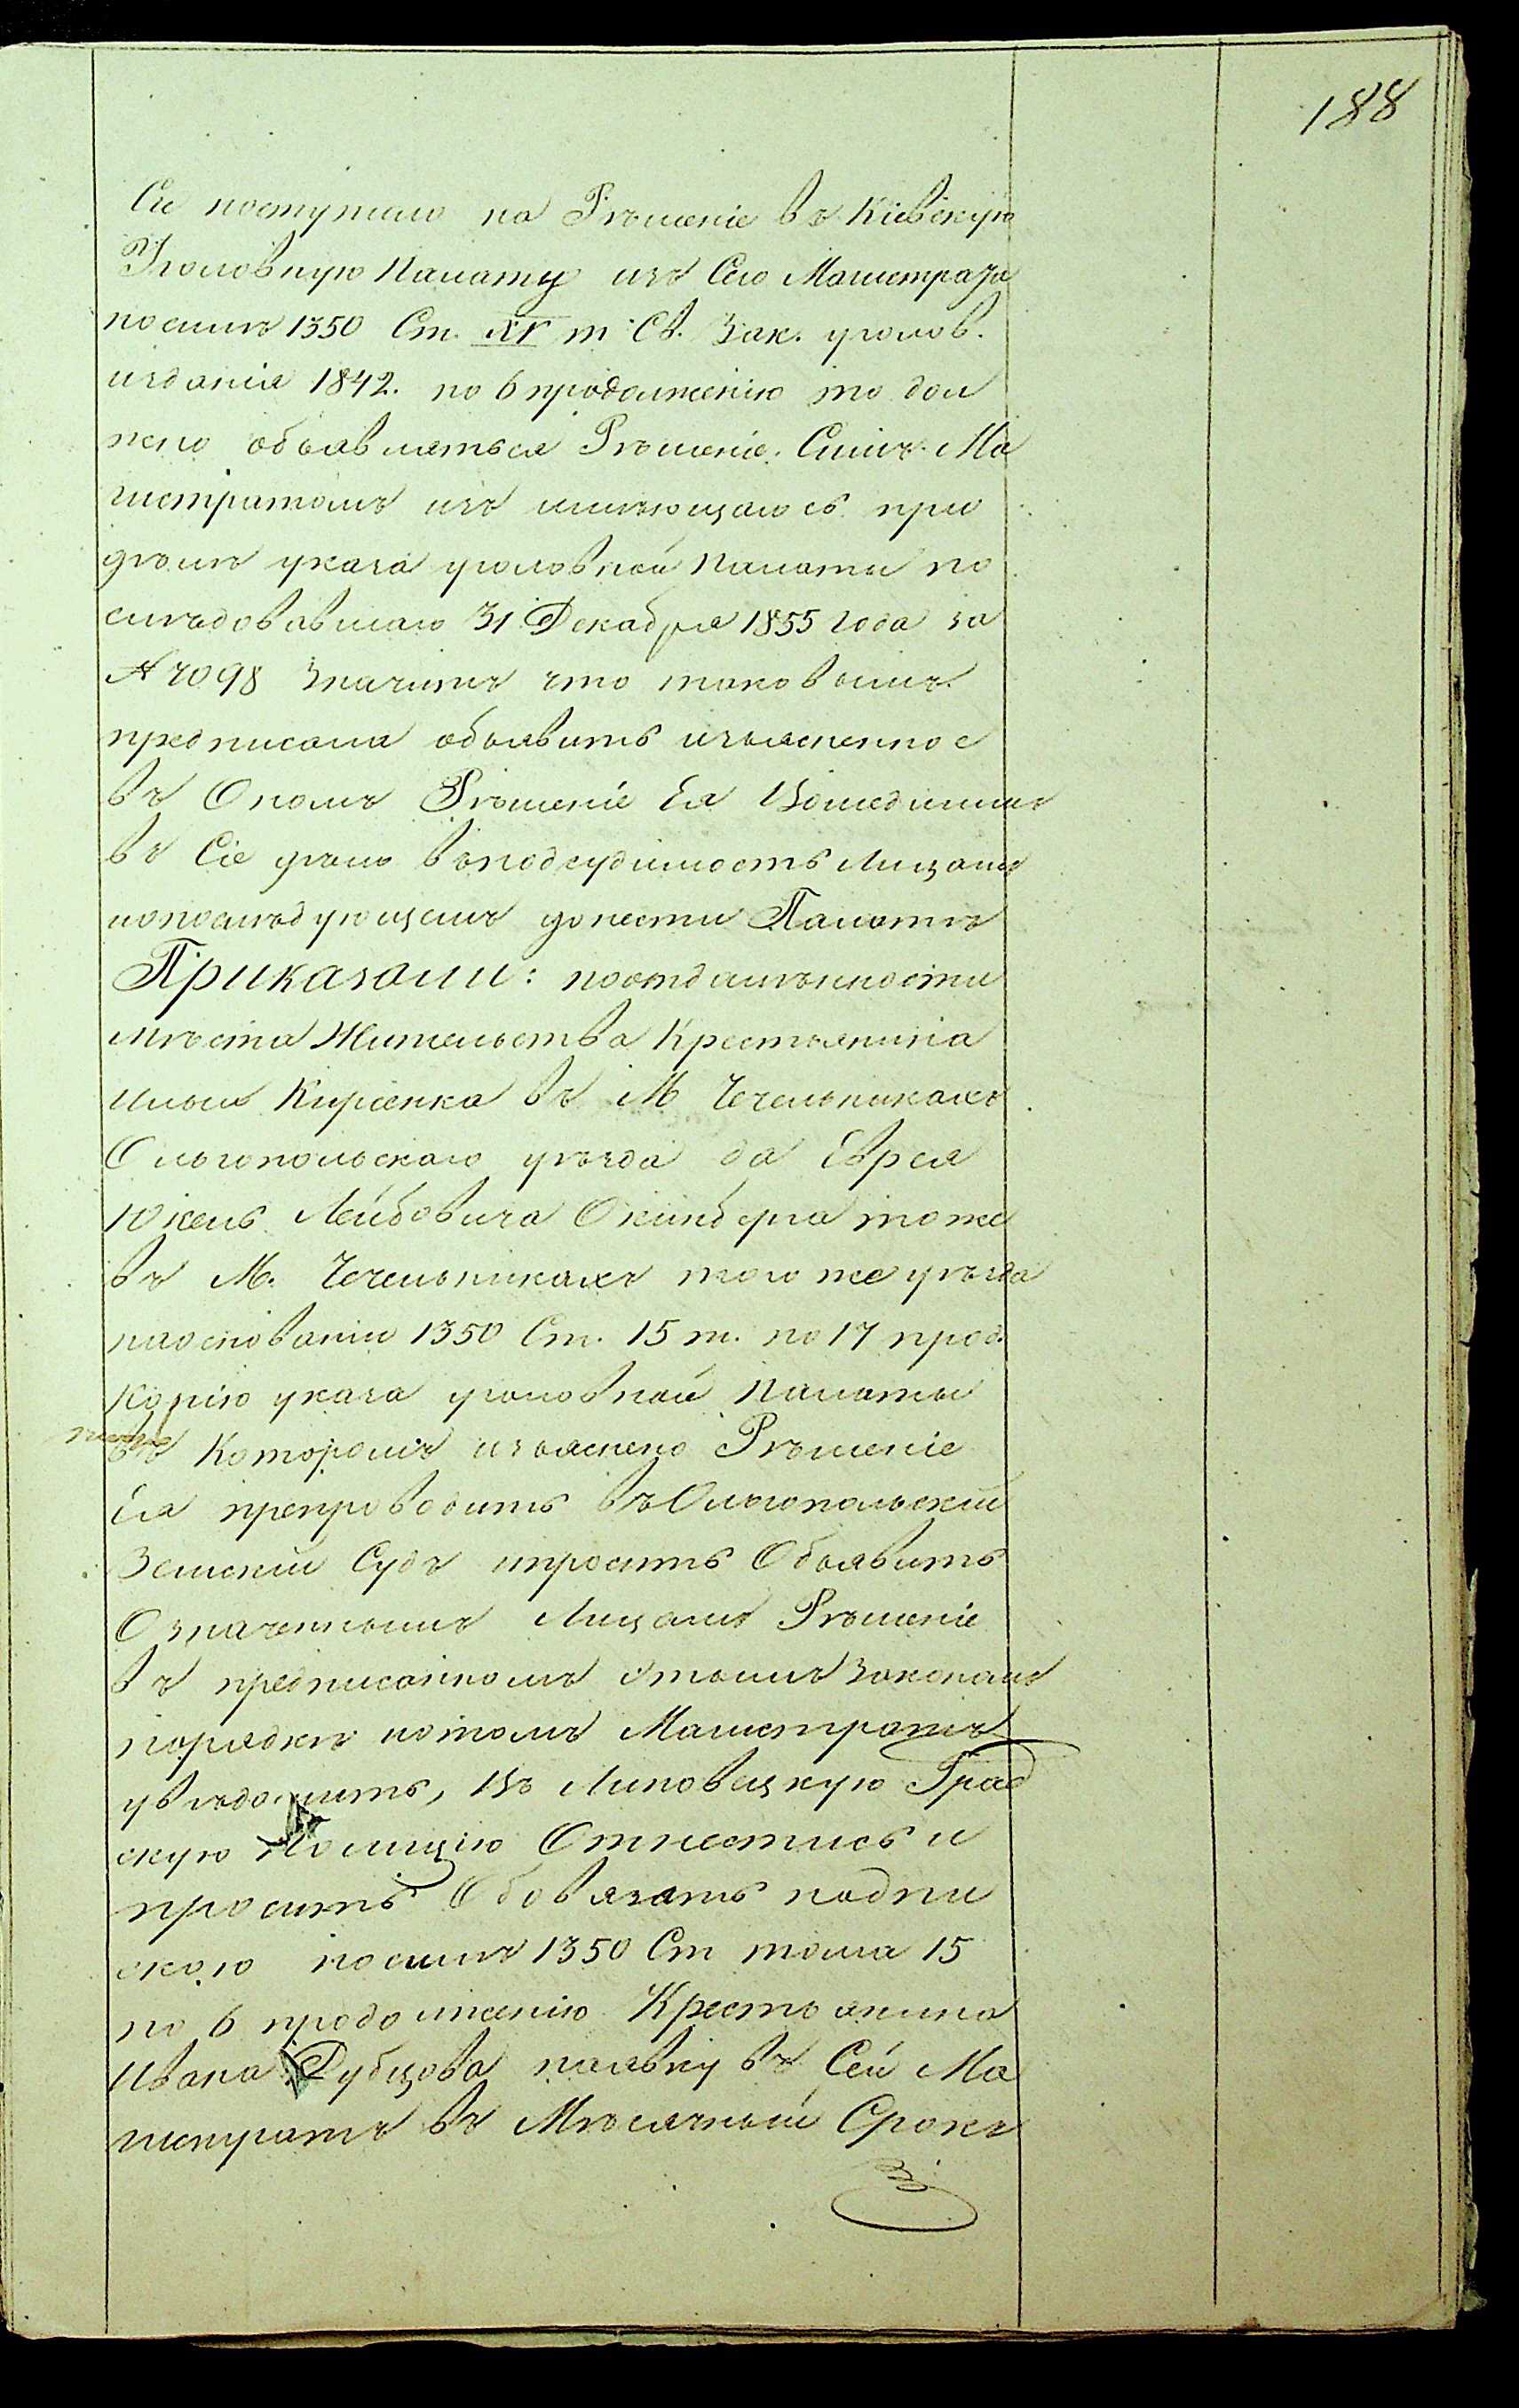 188
Сіе поступило на Рѣшеніе въ Кіевскую
Уголовную Палату изъ Сего Магистрата
посилѣ 1350 Ст. XV т. Св. Зак. уголов.
изданія 1842. по 6 продолженію то дол
жено объявляться Рѣшеніе. Симъ Ма
гистратомъ изъ имѣющагось при
дѣлѣ указа уголовной Палаты по
слѣдовавшаго 31 Декабря 1855 года за
№ 7098 значитъ что таковымъ
предписала объявить изъясненное
въ Ономъ Рѣшеніе Ея Вошедшимъ
въ Сіе дѣло въподсудимость Лицамъ
ипослѣдующемъ донести Палатѣ
Приказали: поотдалѣнности
мѣста Жительства Крестьянина
Ильи Кирѣенка въ М Чечельникахъ
Ольгопольскаго уѣзда да Еврея
Юкель Лейбовича Окинберга тоже
въ М. Чечельникахъ того же уѣзда
наоснованіи 1350 Ст. 15 т. по 17 прод.
Копію указа уголовной Палаты
въ Которомъ изъяснено Рѣшеніе
Ея препроводить въ Ольгопольскій
Земскій Судъ ипросить Объявить
Означеннымъ Лицамъ Рѣшеніе
въ предписанномъ Этымъ Закономъ
порядкѣ иотомъ Магистратъ
увѣдомить, Въ Липовецкую Град
скую Полицію Отнестись и
просить Обовязать подпи
скою посилѣ 1350 Ст тома 15
по 6 продолженію Крестьянина
Ивана Дубцова наявку въ Сей Ма
гистратъ въ Мѣсячный Срокъ